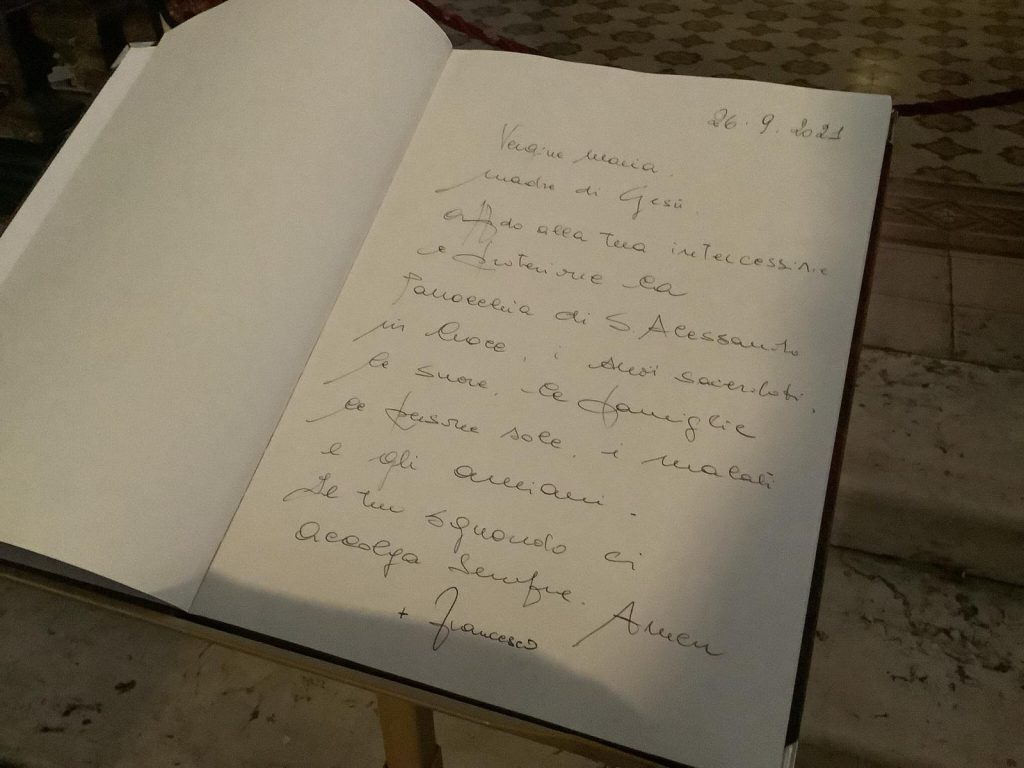 26.9.2021
Vergine Maria,
madre di Gesù,
affido alla tua intercessione
e protezione la
Parrocchia di S Alessandro
in Croce, i suoi sacerdoti,
le suore, le famiglie
le persone sole, i malati
e gli anziani.
Il tuo sguardo ci
accolga sempre. Amen
+ Francesco